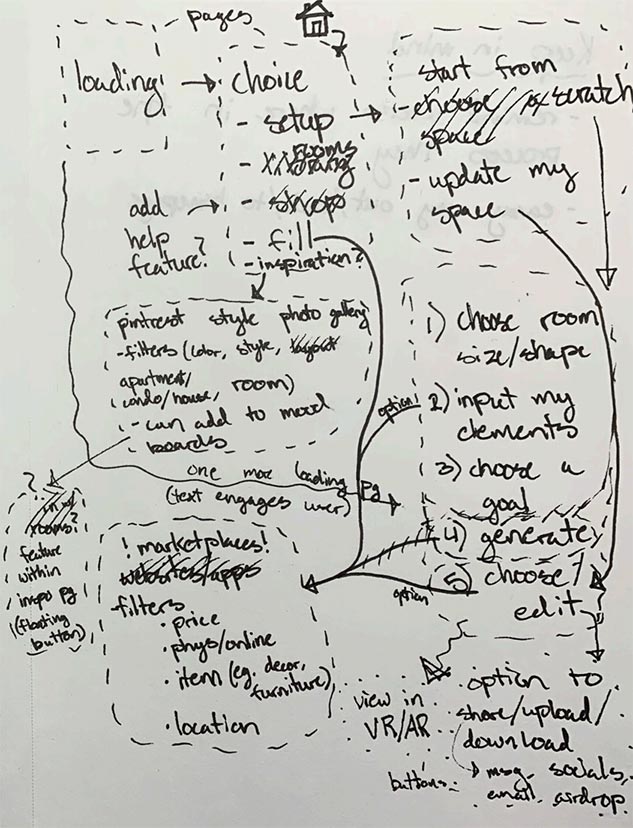 pages
?
loading
choice
- setup
rooms
- shop
- fill
- inspiration?
add
help
feature?
start from
scratch
- choose
space
- update my
space
pintrest style photo gallery
- filters (color, style, layout
apartment/
condo/house, room)
- can add to mood
boards
1) choose room
size/shape
option
2) input my
elements
3) choose a
goal
4) generate
option
5) choose/
edit
one more loading pg
(text engages user)
?
in my
rooms?
feature
within
inspo pg
(floating
button)
! marketplaces!
websites/apps
filters
· price
· phys/online
· item (eg. decor,
furniture)
· location
view in
VR/AR
buttons
option to
share/upload/
download
msg, socials,
email, airdrop
Keep in mind